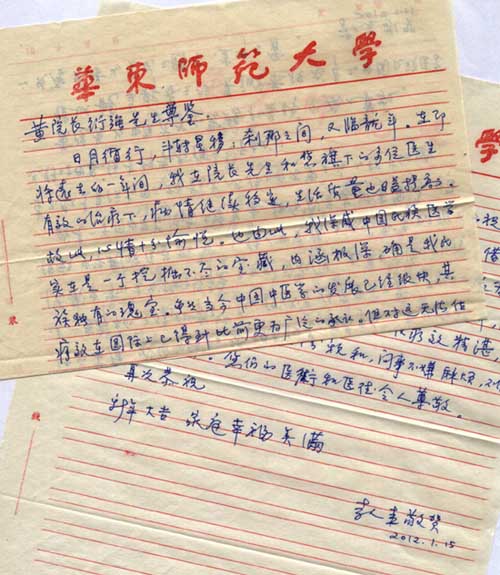 華東师范大学
黄院长衍强先生尊鉴：
日月循行，斗转星移，刹那之间，又临龙年。在即
将逝去的一年间，我在院长先生和您旗下的多位医生
有效的治疗下，病情继续稳定，生活质量也日益提高。
故此，心情十分愉悦。也由此，我深感中国民族医学
实在是一个挖掘不尽的宝藏，内涵极深，确是我民
族独有的瑰宝。虽然当今中国中医学的发展已经很快，其
疗效在国际上已得到比前更为广泛的承认。但对这无法估
疗效精湛
和，问事不嫌麻烦，不
您们的医术和医德令人尊敬。
再次恭祝
新年大吉 家庭幸福美满
敬贺
2012.1.15